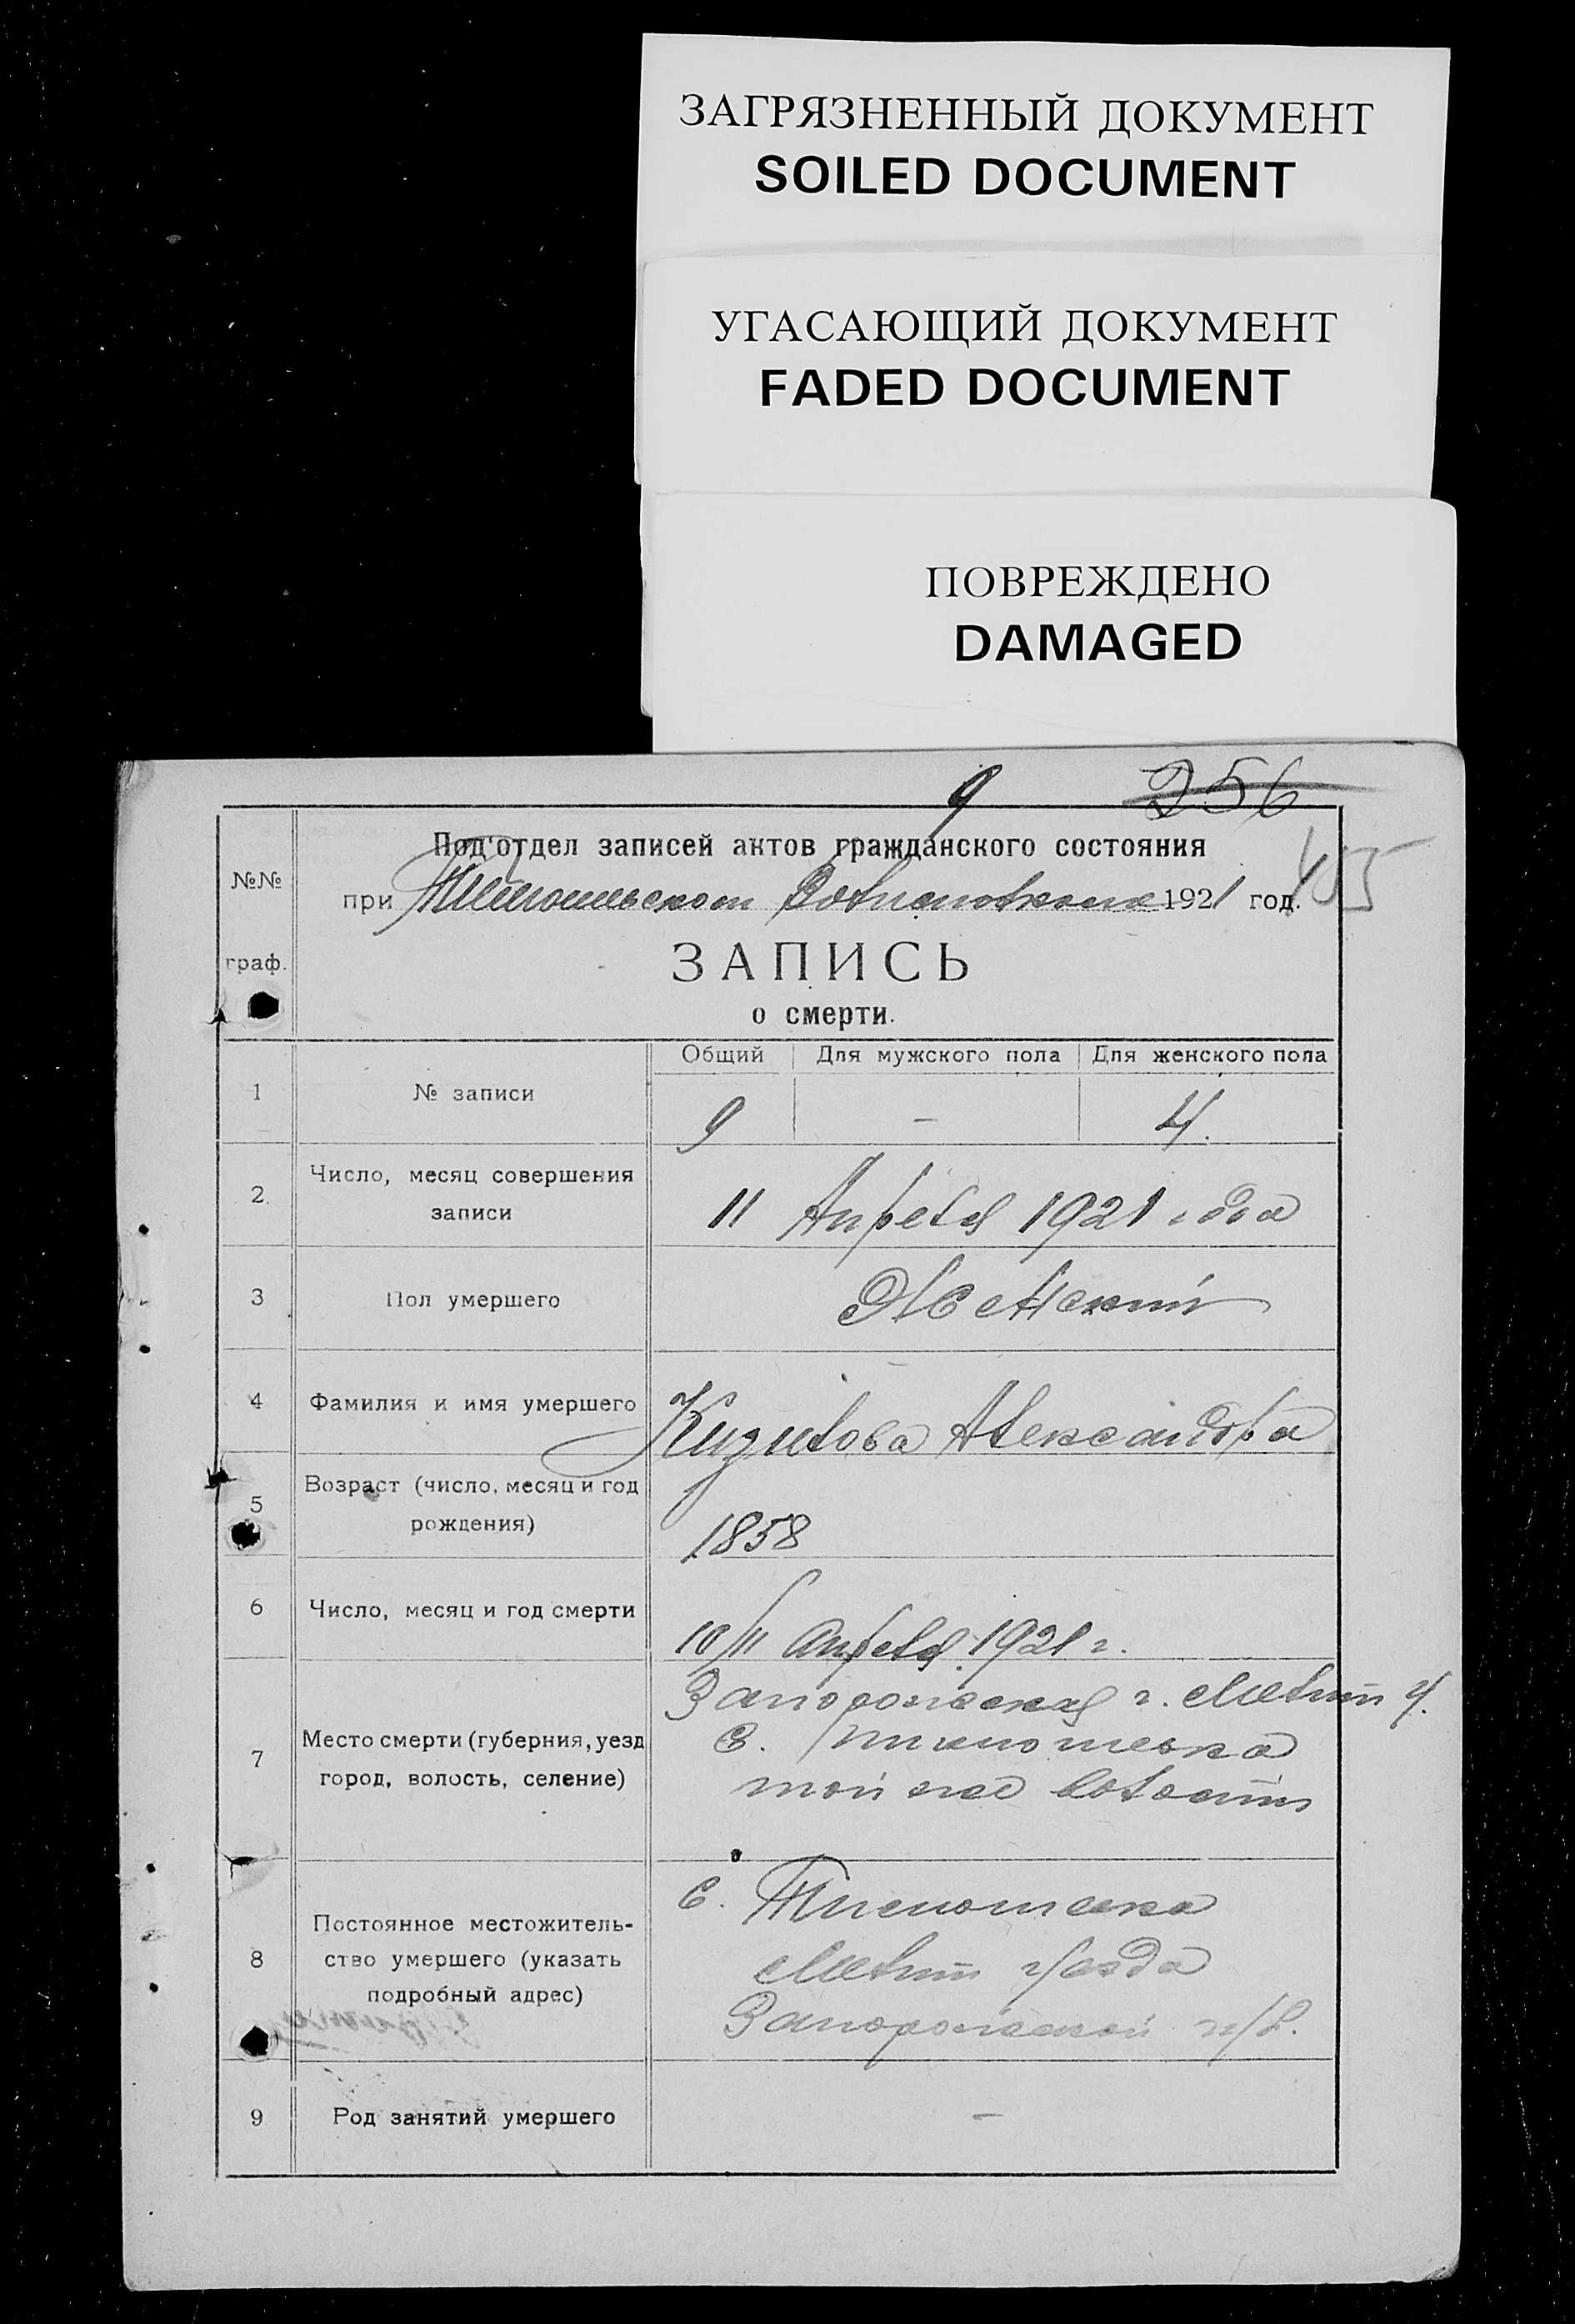 ЗАГРЯЗНЕННЫЙ ДОКУМЕНТ
SOILED DOCUMENT
УГАСАЮЩИЙ ДОКУМЕНТ
FADED DOCUMENT
ПОВРЕЖДЕНО
DAMAGED
9 256
№№ граф.
Под'отдел записей актов гражданского состояния
при Волисполкоме 1921 год.
ЗАПИСЬ
о смерти.
Общий Для мужского пола Для женского пола
1 № записи 9 – 4.
2. Число, месяц совершения
записи 11 Апреля 1921 года
3 Пол умершего Женский
4 Фамилия и имя умершего Кизилова Александра
5 Возраст (число, месяц и год
рождения) 1858
6 Число, месяц и год смерти 10/11 Апреля 1921 г.
Запорожская г. Мелит у.
7 Место смерти (губерния, уезд
город, волость, селение) с.
той же волости
8 Постоянное местожитель-
ство умершего (указать
подробный адрес) с.
Мелит уезда
Запорожской губ.
9 Род занятий умершего –